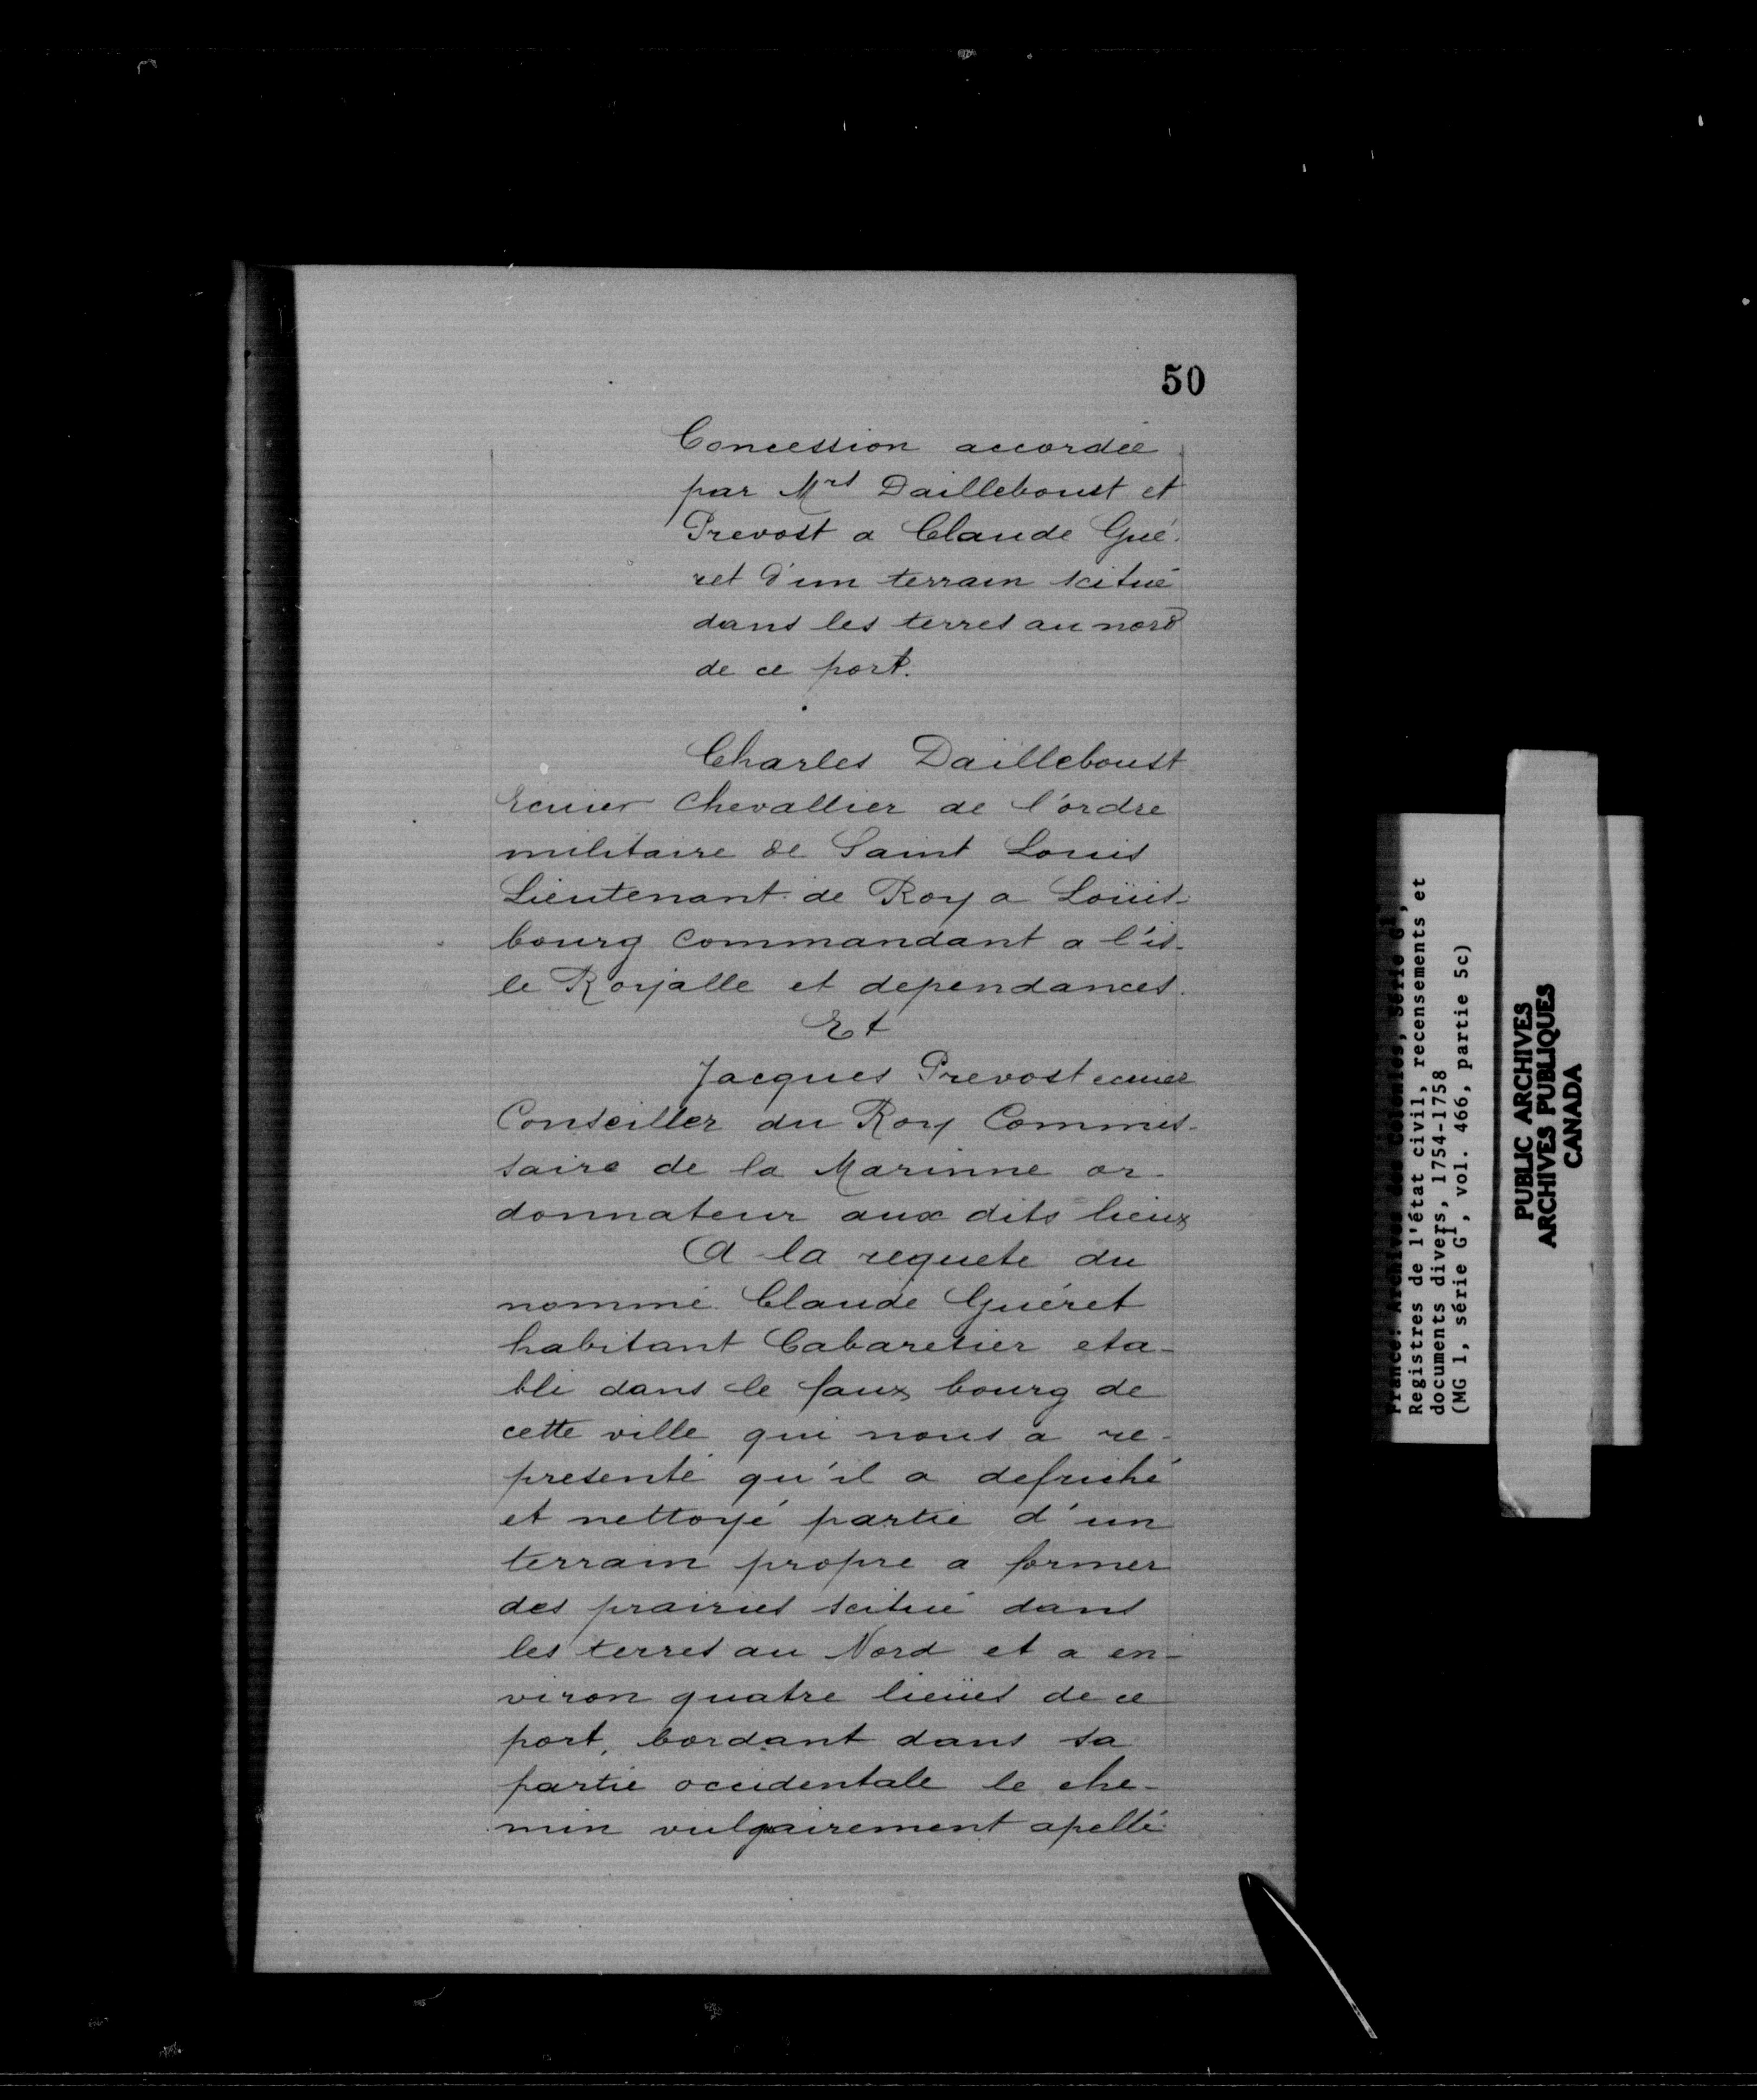 50
Concession accordée
par Mrs Dailleboust et
Prevost a Claude Gué-
ret d'un terrain scitué
dans les terres au nord
de ce port.
Charles Dailleboust
Ecuier Chevallier de l'ordre
militaire de Saint Louis
Lieutenant de Roy a Loüis-
bourg Commandant a l'is-
le Royalle et dependances.
Et
Jacques Prevost ecuier
Conseiller du Roy Commis-
saire de la Marinne or-
donnateur aux dits lieux
A la requete du
nommé Claude Guéret
habitant Cabaretier eta-
bli dans le faux bourg de
cette ville qui nous a re-
presenté qu'il a defriché
et nettoyé partie d'un
terrain propre a former
des prairies scitué dans
les terres au Nord et a en-
viron quatre lieües de ce
port, bordant dans sa
partie occidentale le che-
min vulgairement apellé
France: Archives des Colonies, Série G1,
Registres de l'état civil, recensements et
documents divers, 1754-1758
(MG 1, série G1, vol. 466, partie 5c)
PUBLIC ARCHIVES
ARCHIVES PUBLIQUES
CANADA